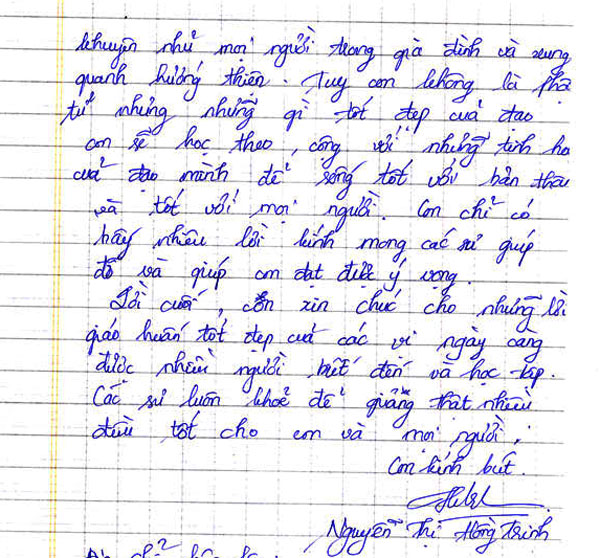 khuyên nhủ mọi người trong gia đình và xung
quanh hướng thiện. Tuy con không là phậ
tử nhưng những gì tốt đẹp của đạo
con sẽ học theo, cộng với những tinh ho
của đạo mình để sống tốt với bản thâ
và tốt với mọi người. Con chỉ có
bấy nhiêu lời kính mong các sư giúp
đỡ và giúp con đạt được ý vọng.
Lời cuối, con xin chúc cho những lời
giáo huấn tốt đẹp của các vị ngày càng
được nhiều người biết đến và học tập.
Các sư luôn khoẻ để giảng thật nhiều
điều tốt cho con và mọi người.
Con kính bút.
Nguyễn Thị Hồng Trinh